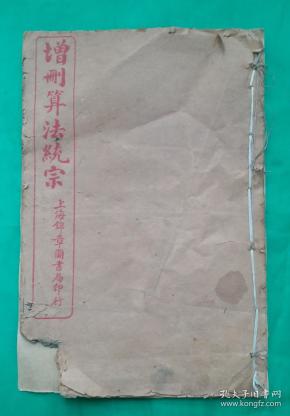 增刪算法統宗
上海錦章圖書局印行
孔夫子旧书网